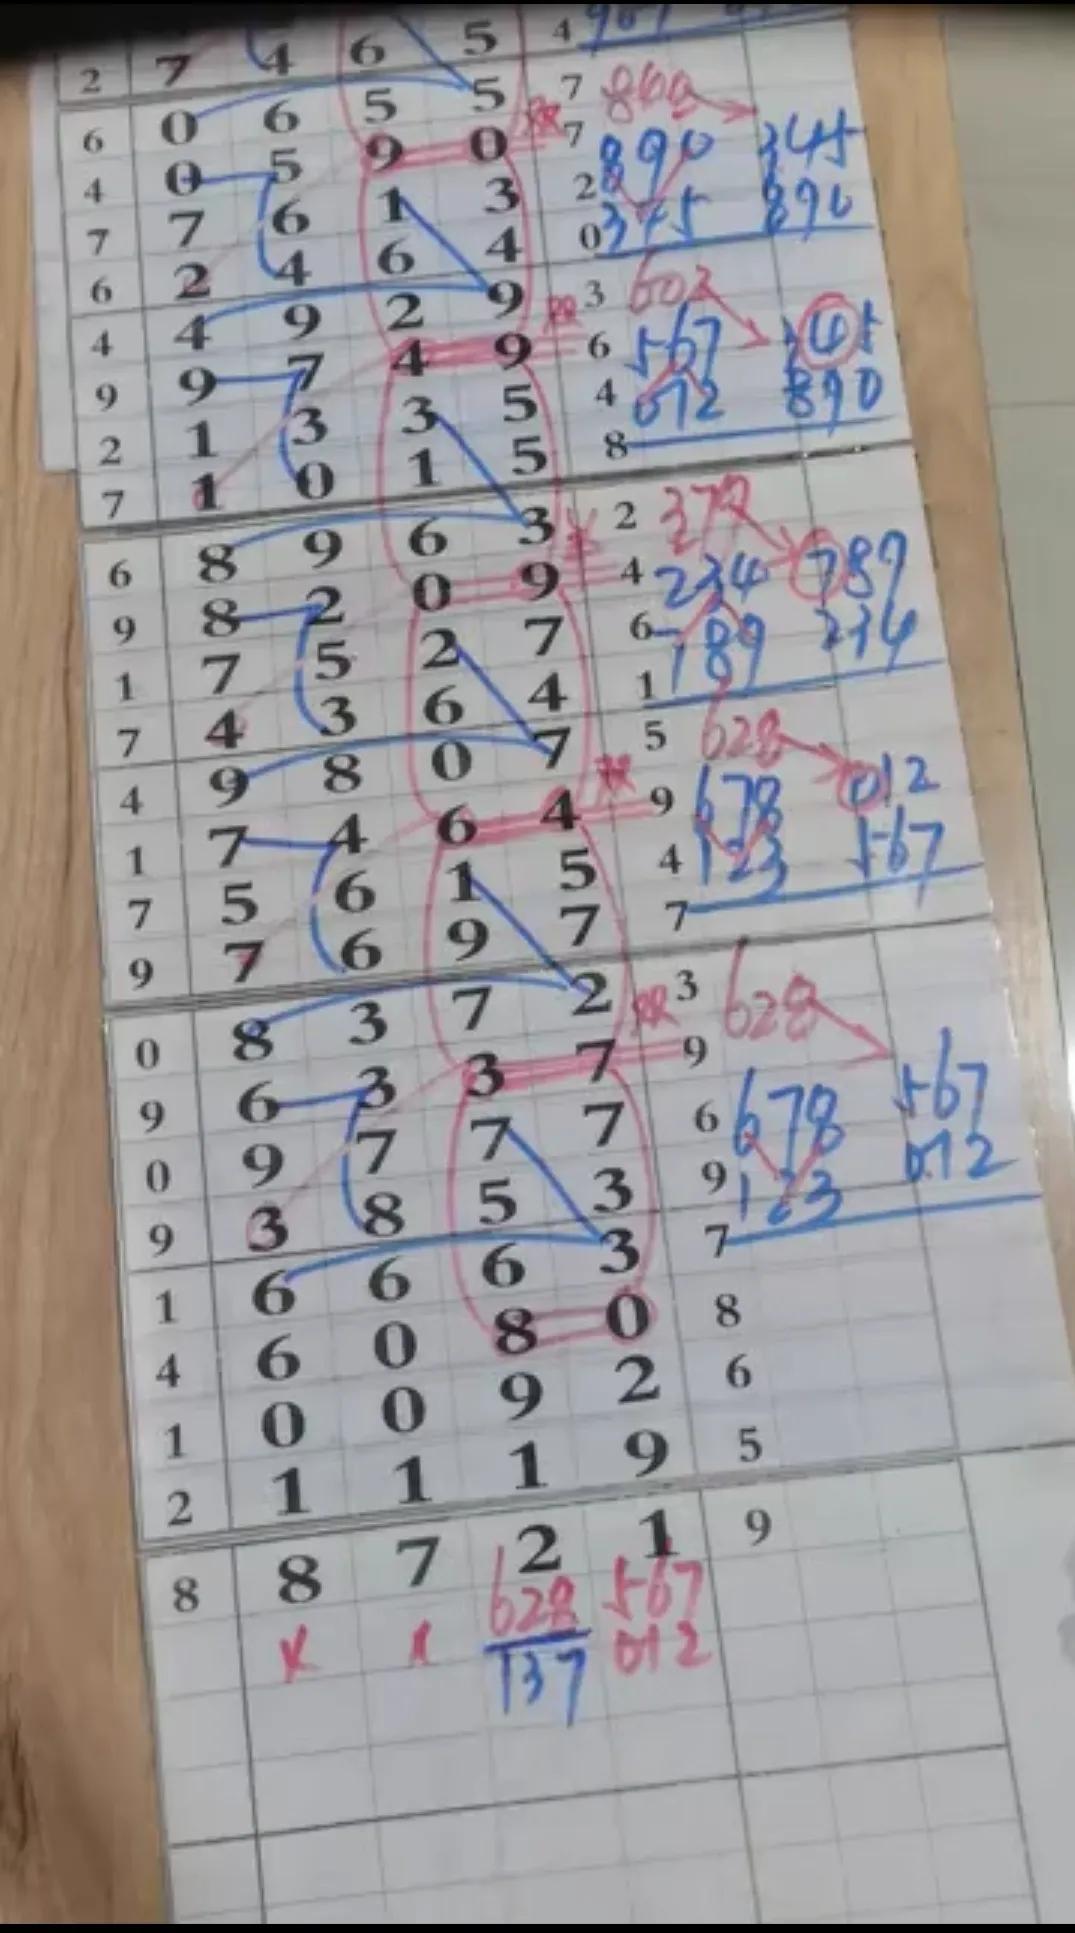 2 7 4 6 5 4 967
6 0 6 5 5 7
4 0 5 9 0 双 7 890 345
7 7 6 1 3 2 345 890
6 2 4 6 4 0
4 4 9 2 9 双 3 602
9 9 7 4 9 6 567 345
2 1 3 3 5 4 012 890
7 1 0 1 5 8
6 8 9 6 3 2
9 8 2 0 9 4 234 789
1 7 5 2 7 6 789 234
7 4 3 6 4 1
4 9 8 0 7 5 628
1 7 4 6 4 双 9 678 012
7 5 6 1 5 4 123 567
9 7 6 9 7 7
0 8 3 7 2 双 3 628
9 6 3 3 7 9
0 9 7 7 7 6 678 567
9 3 8 5 3 9 123 012
1 6 6 6 3 7
4 6 0 8 0 8
1 0 0 9 2 6
2 1 1 1 9 5
8 8 7 2 1 9
x x 628 567
137 012